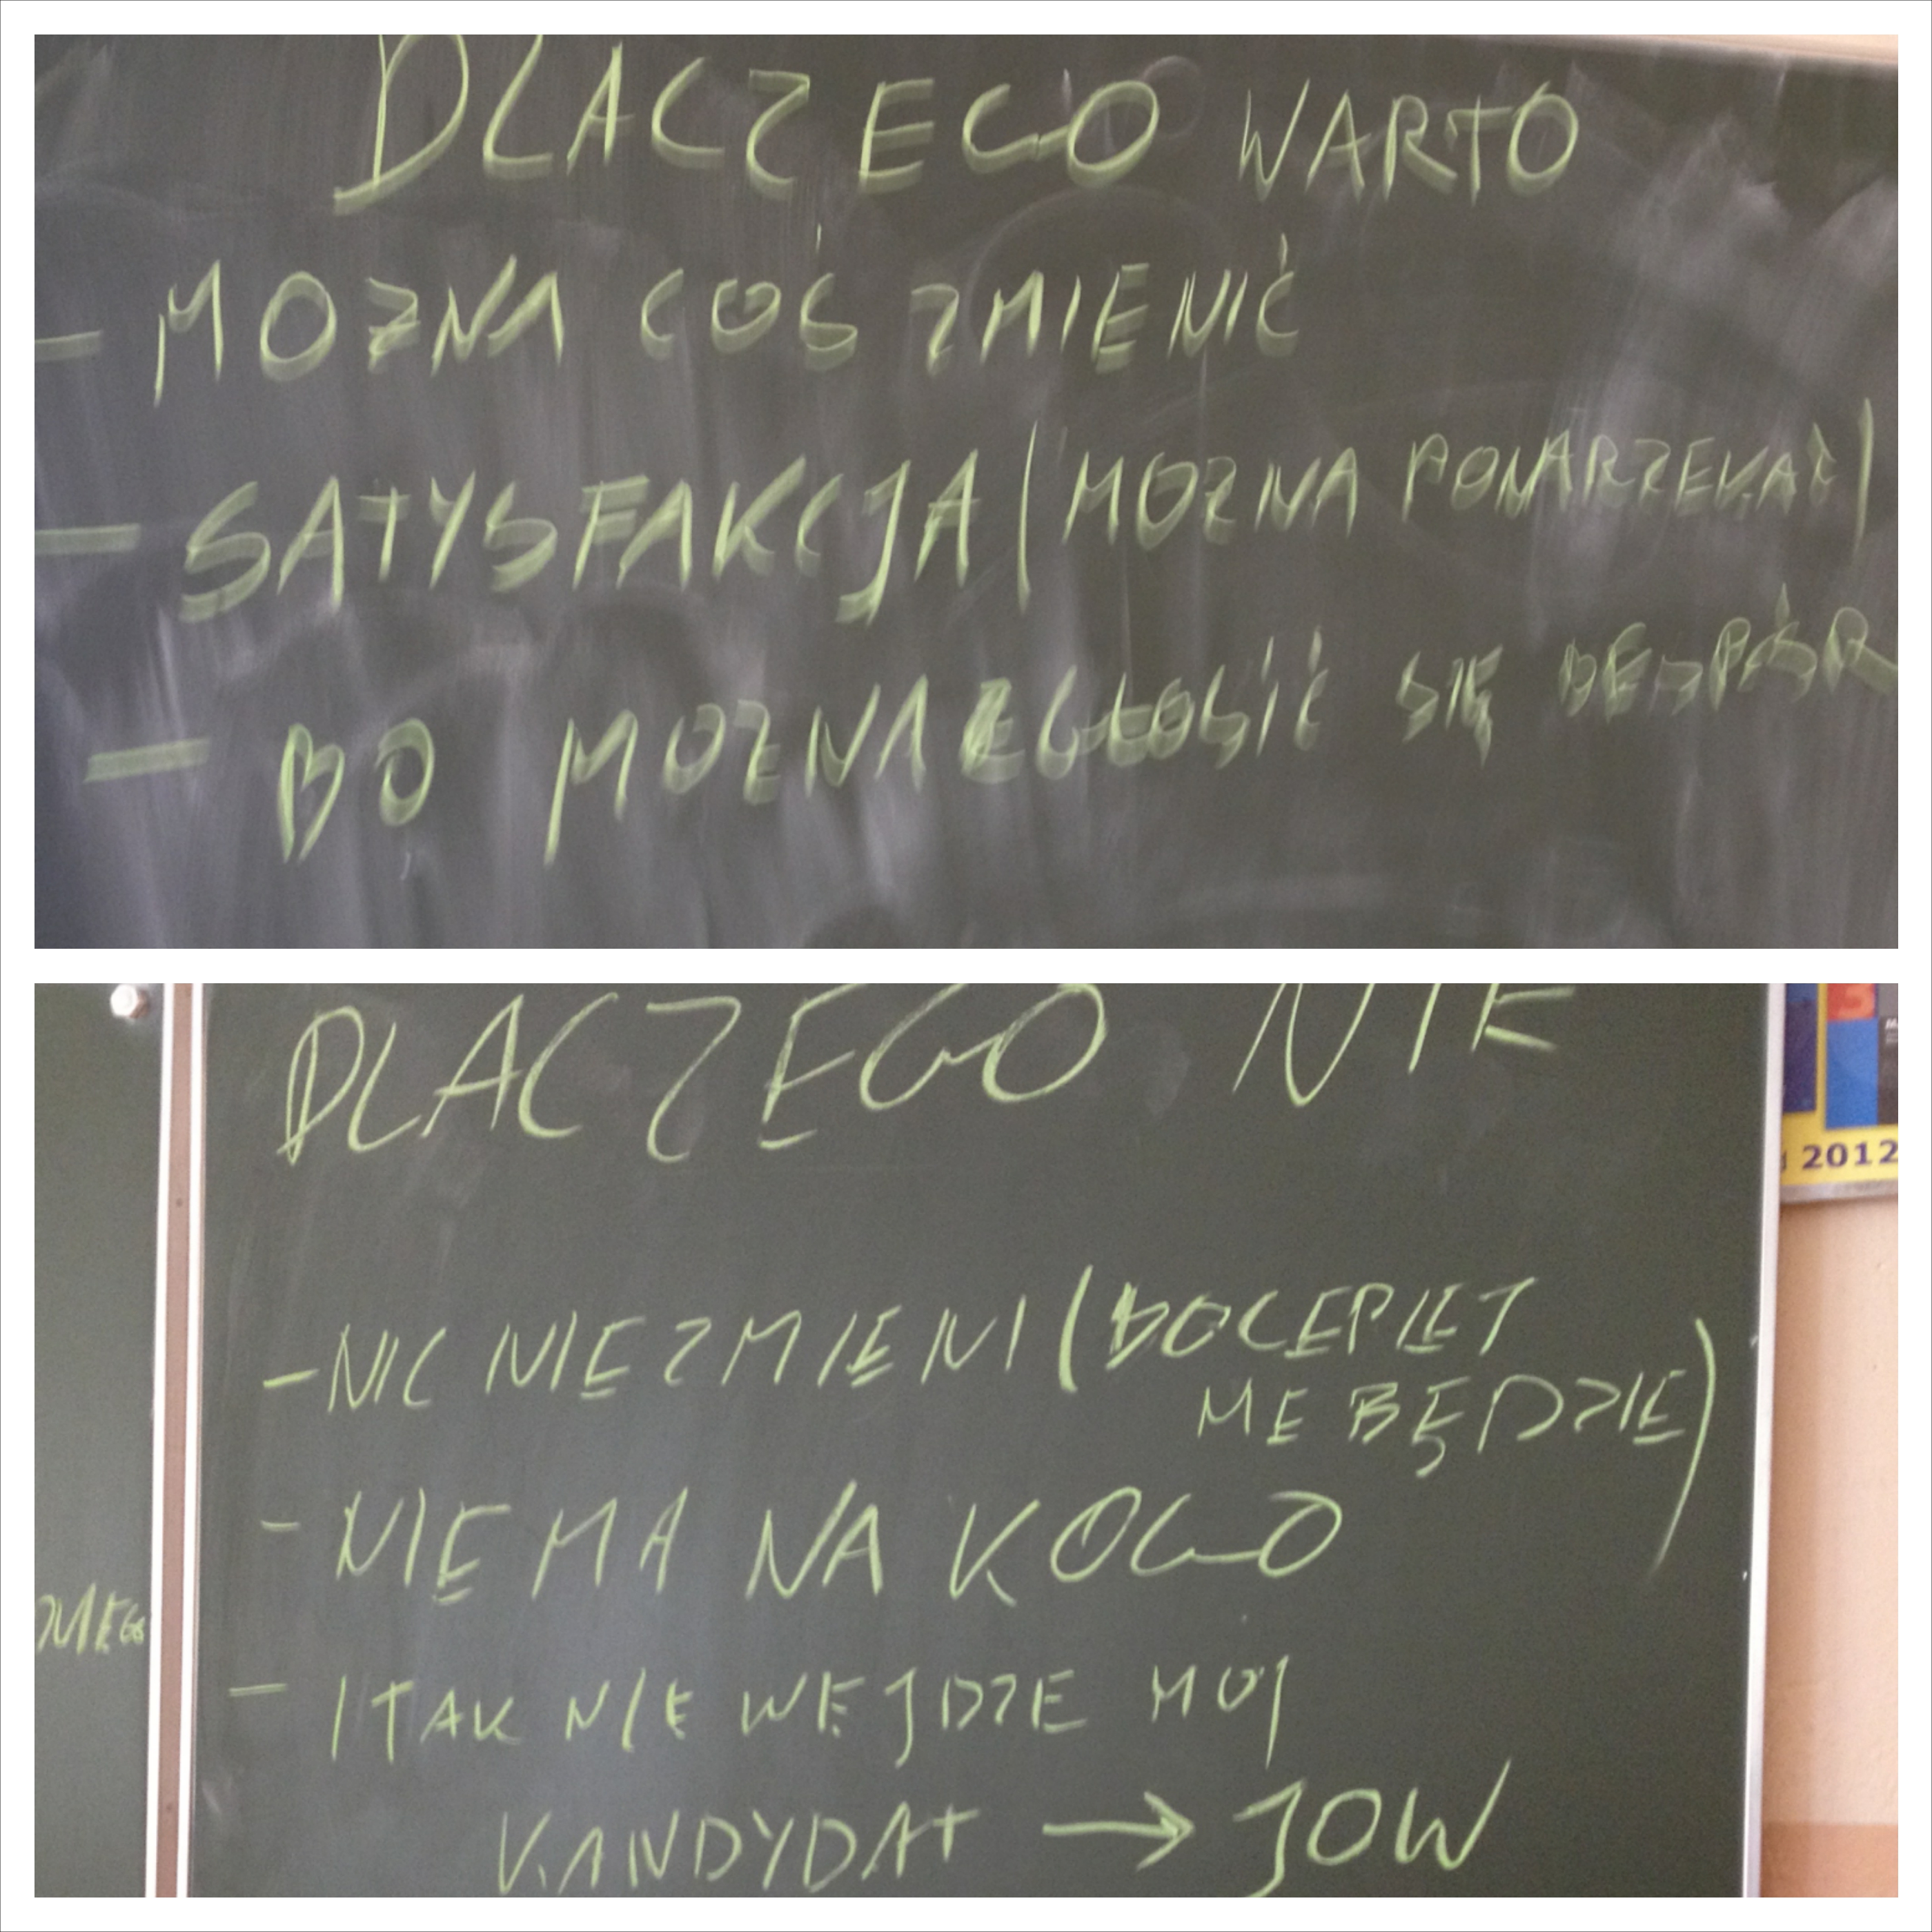 DLACZEGO WARTO
- MOŻNA COŚ ZMIENIĆ
- SATYSFAKCJA (MOŻNA PONARZEKAĆ)
- BO MOŻNA ZGŁOSIĆ SIĘ
DLACZEGO NIE
- NIC NIE ZMIENI (BO CEPLEJ
NIE BĘDZIE)
- NIE MA NA KOGO
- I TAK NIE WEJDZE MÓJ
KANDYDAT → JOW
2012